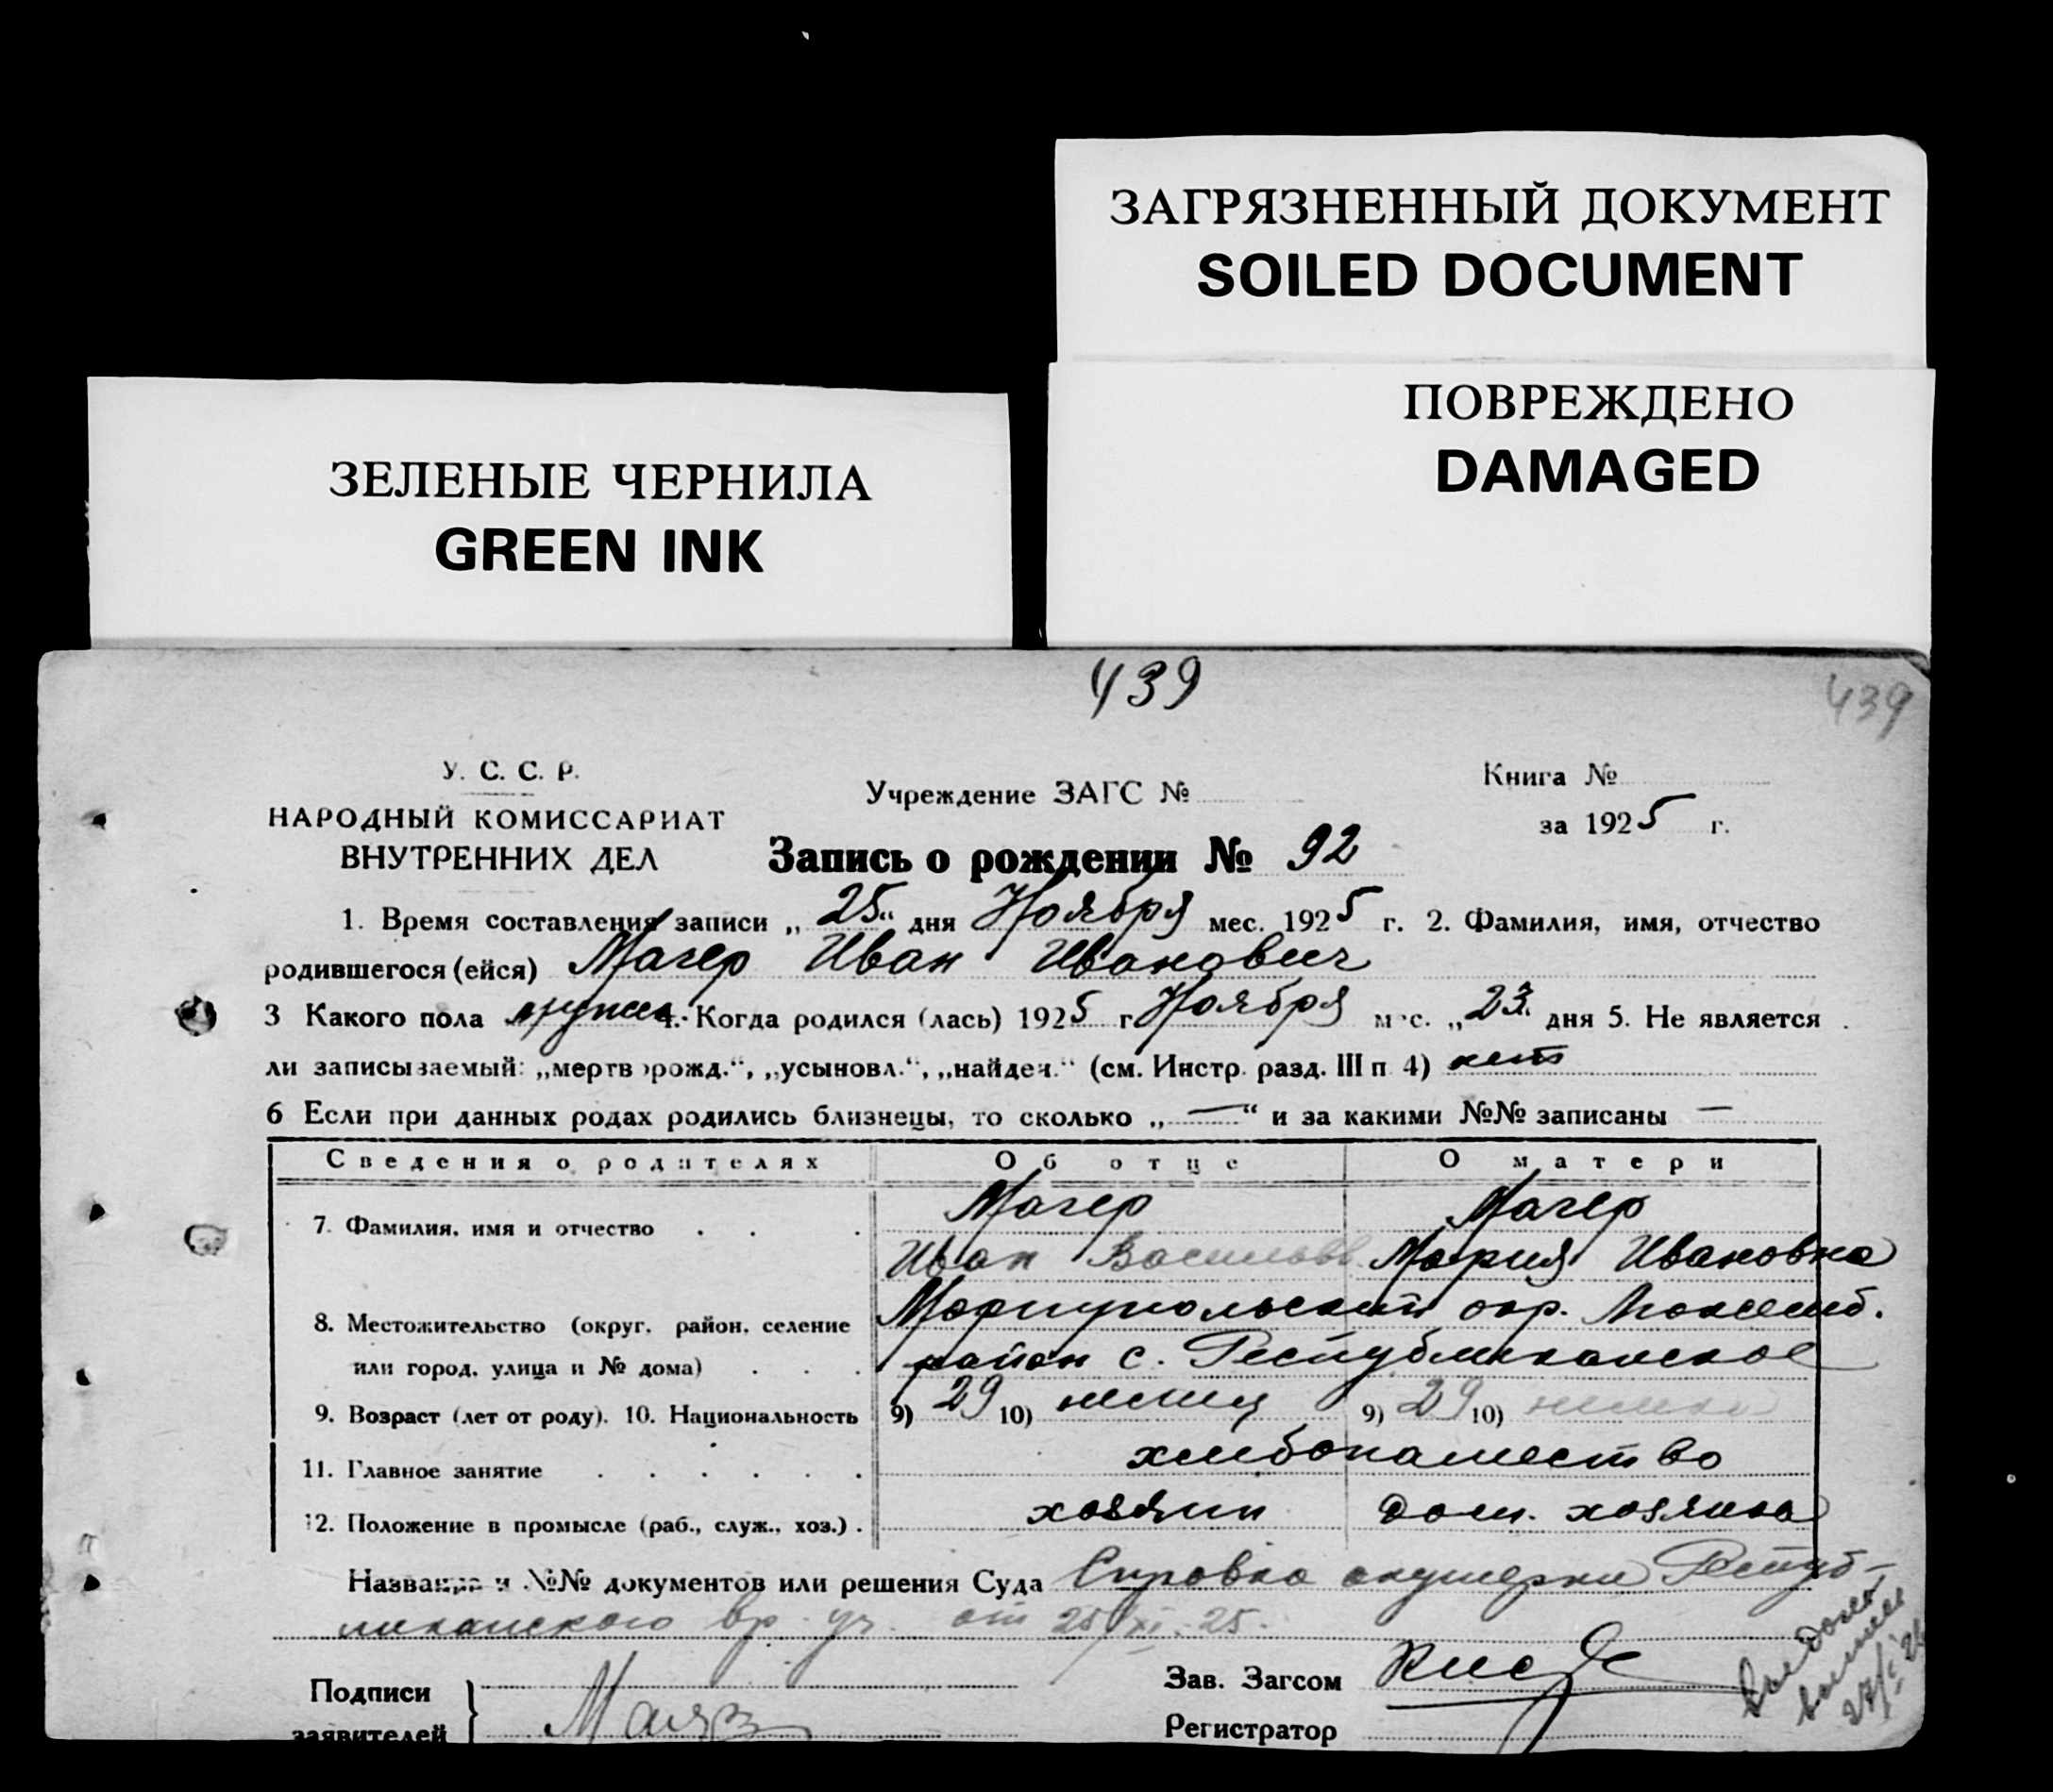 ЗАГРЯЗНЕННЫЙ ДОКУМЕНТ
SOILED DOCUMENT
ПОВРЕЖДЕНО
DAMAGED
ЗЕЛЕНЫЕ ЧЕРНИЛА
GREEN INK
439
439
У. С. С. Р.
НАРОДНЫЙ КОМИССАРИАТ
ВНУТРЕННИХ ДЕЛ
Учреждение ЗАГС №
Книга №
за 1925 г.
Запись о рождении № 92
1. Время составления записи „25“ дня Ноября мес. 1925 г. 2. Фамилия, имя, отчество
родившегося (ейся) Магер Иван Иванович
3 Какого пола мужск. 4. Когда родился (лась) 1925 г Ноября мес. „23“ дня 5. Не является
ли записываемый: „мертворожд.“, „усыновл.“, „найден.“ (см. Инстр. разд. III п 4) нет
6 Если при данных родах родились близнецы, то сколько „—“ и за какими №№ записаны —
Сведения о родителях Об отце О матери
Магер Магер
7. Фамилия, имя и отчество
Иван Васильев Мария Ивановна
Мариупольский окр.
8. Местожительство (округ, район, селение
или город, улица и № дома) район с. Республиканское
9. Возраст (лет от роду). 10. Национальность 9) 29 10) немец 9) 29 10) немка
11. Главное занятие хлебопашество
12. Положение в промысле (раб., служ., хоз.) хозяин дом. хозяйка
Название и №№ документов или решения Суда Справка акушерки Респуб-
ликанского вр. уч. от 25/XI. 25.
Подписи
заявителей
Зав. Загсом
Регистратор